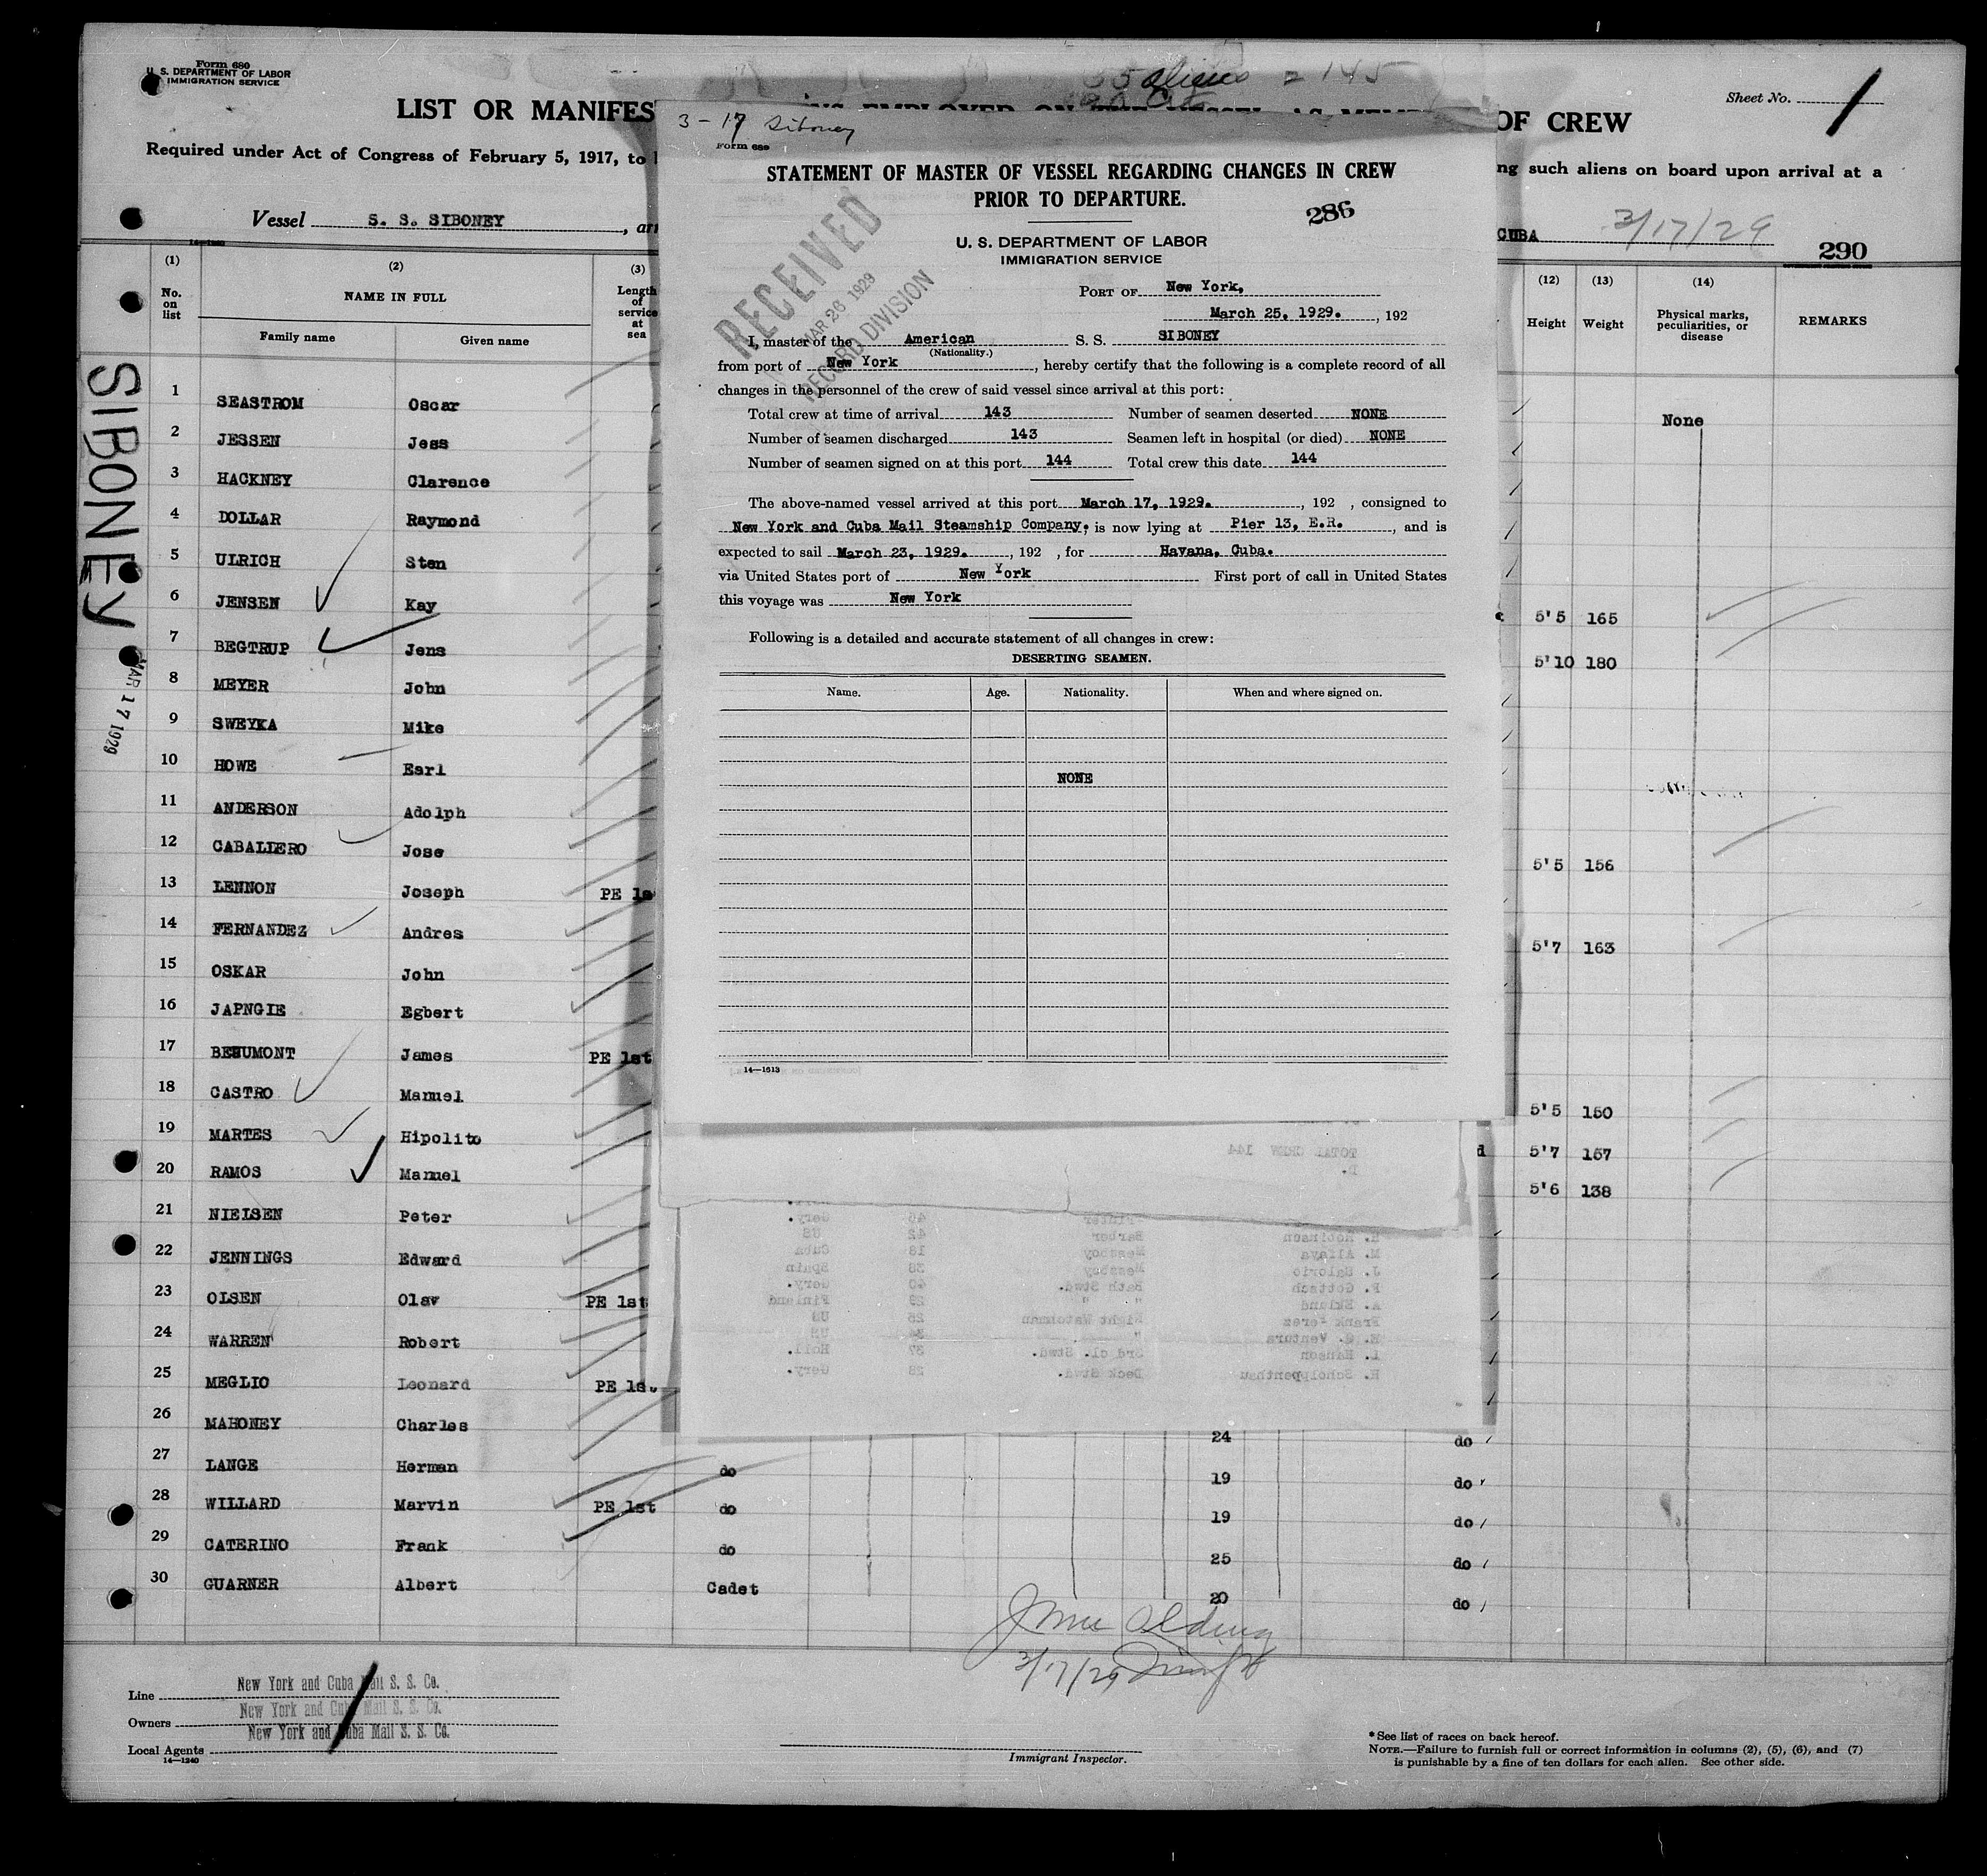 Form 680
U. S. DEPARTMENT OF LABOR
IMMIGRATION SERVICE
Sheet No. 1
LIST OR MANIFES
OF CREW
Required under Act of Congress of February 5, 1917, to
ng such aliens on board upon arrival at a
Vessel S. S. SIBONEY, arr
CUBA 3/17/29
290
aliens = 145
(1) (2) (3) (12) (13) (14)
No. on list
NAME IN FULL
Family name Given name
Length of service at sea
Height Weight
Physical marks, peculiarities, or disease
REMARKS
SIBONEY
MAR 17 1929
1 SEASTROM Oscar None
2 JESSEN Jess
3 HACKNEY Clarence
4 DOLLAR Raymond
5 ULRICH Sten
6 JENSEN Kay 5'5 165
7 BEGTRUP Jens 5'10 180
8 MEYER John
9 SWEYKA Mike
10 HOWE Earl
11 ANDERSON Adolph
12 CABALLERO Jose 5'5 156
13 LENNON Joseph PE 1s
14 FERNANDEZ Andres 5'7 163
15 OSKAR John
16 JAPNGIE Egbert
17 BEUMONT James PE 1st
18 CASTRO Manuel 5'5 150
19 MARTES Hipolito d 5'7 157
20 RAMOS Manuel 5'6 138
21 NIELSEN Peter
22 JENNINGS Edward
23 OLSEN Olav PE 1st
24 WARREN Robert
25 MEGLIO Leonard PE 1st
26 MAHONEY Charles 24 do
27 LANGE Herman do 19 do
28 WILLARD Marvin PE 1st do 19 do
29 CATERINO Frank do 25 do
30 GUARNER Albert Cadet 20 do
3/17/29
Line New York and Cuba Mail S. S. Co.
Owners New York and Cuba Mail S. S. Co.
Local Agents New York and Cuba Mail S. S. Co.
14—1240
Immigrant Inspector.
* See list of races on back hereof.
NOTE.—Failure to furnish full or correct information in columns (2), (5), (6), and (7)
is punishable by a fine of ten dollars for each alien. See other side.
3-17 Siboney
Form 689
STATEMENT OF MASTER OF VESSEL REGARDING CHANGES IN CREW
PRIOR TO DEPARTURE.
286
U. S. DEPARTMENT OF LABOR
IMMIGRATION SERVICE
RECEIVED
MAR 26 1929
RECORD DIVISION
PORT OF New York,
March 25, 1929. , 192
I, master of the American S. S. SIBONEY
(Nationality.)
from port of New York, hereby certify that the following is a complete record of all
changes in the personnel of the crew of said vessel since arrival at this port:
Total crew at time of arrival 143 Number of seamen deserted NONE
Number of seamen discharged 143 Seamen left in hospital (or died) NONE
Number of seamen signed on at this port 144 Total crew this date 144
The above-named vessel arrived at this port March 17, 1929. , 192 , consigned to
New York and Cuba Mail Steamship Company; is now lying at Pier 13, E.R. , and is
expected to sail March 23, 1929. , 192 , for Havana, Cuba.
via United States port of New York First port of call in United States
this voyage was New York
Following is a detailed and accurate statement of all changes in crew:
DESERTING SEAMEN.
Name. Age. Nationality. When and where signed on.
NONE
14—1513
TOTAL CREW 144
E. Robinson Barber 42 US
M. Alfaya Messboy 18 Cuba
J. Salorio Messboy 38 Spain
F. Gottsch Bath Stwd. 40 Gery.
A. Eklund " " 29 Finland
Frank Perez Night Watchman 25 US
E. G. Ventura " US
L. Hanson 3rd cl. Stwd. 37 Holl.
H. Scholppenthau Deck Stwd. 28 Gery.